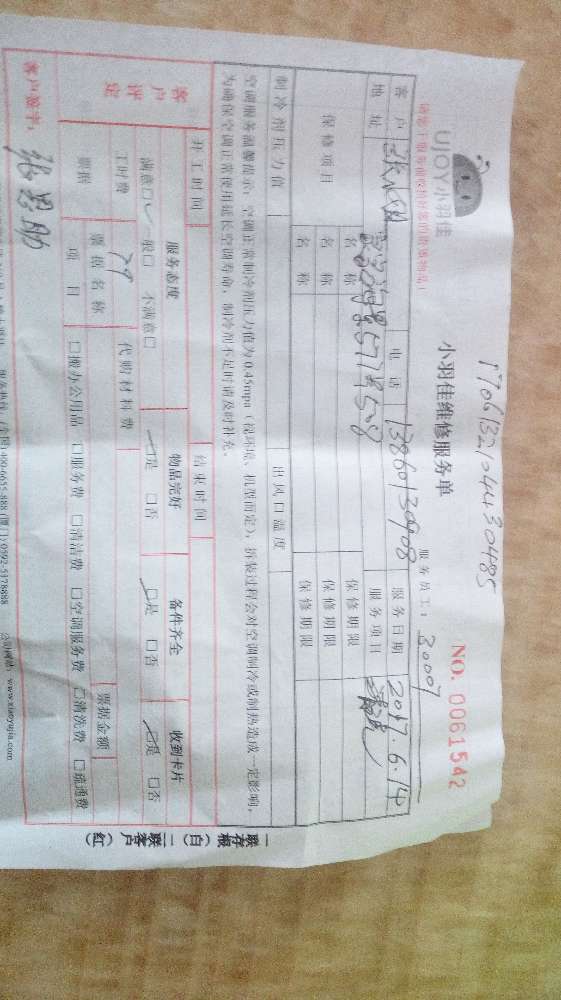 17061321044430485
UJOY小羽佳
小羽佳维修服务单
NO. 0061542
服务员工: 30007
客户 电话 13860130908 服务日期 2017.6.14
地址 服务项目
保修项目 名称 保修期限
名称 保修期限
名称 保修期限
制冷剂压力值 出风口温度
空调服务温馨提示:空调正常制冷剂压力值为0.45mpa(视环境、机型而定),拆装过程会对空调制冷或制热造成一定影响,
为确保空调正常使用延长空调寿命,制冷剂不足时请及时补充。
开工时间 结束时间
客户评定 服务态度 物品完好 备件齐全 收到卡片
满意□✓ 一般□ 不满意□ ☑是 □否 ☑是 □否 ☑是 □否
工时费 79 代购材料费
票据 票据名称 票据金额
项目 □搬办公用品 □服务费 □清洁费 □空调服务费 □清洗费 □疏通费
客户签字:
400-6655-888 (厦门):0592-5178888 公司网站: www.xiaoyujia.com
一联存根(白) 二联客户(红)